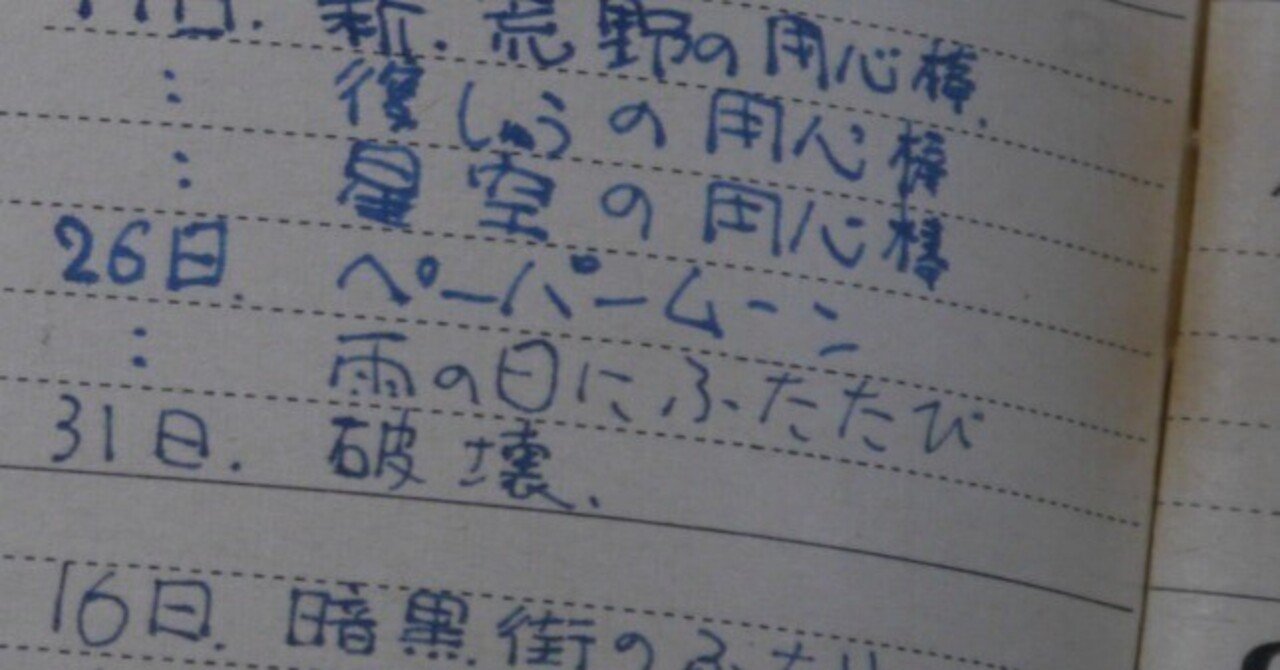 日. 新.荒野の用心棒.
: 復しゅうの用心棒
: 星空の用心棒
26日. ペーパームーン
: 雨の日にふたたび
31日. 破壊.
16日. 暗黒街のふたり